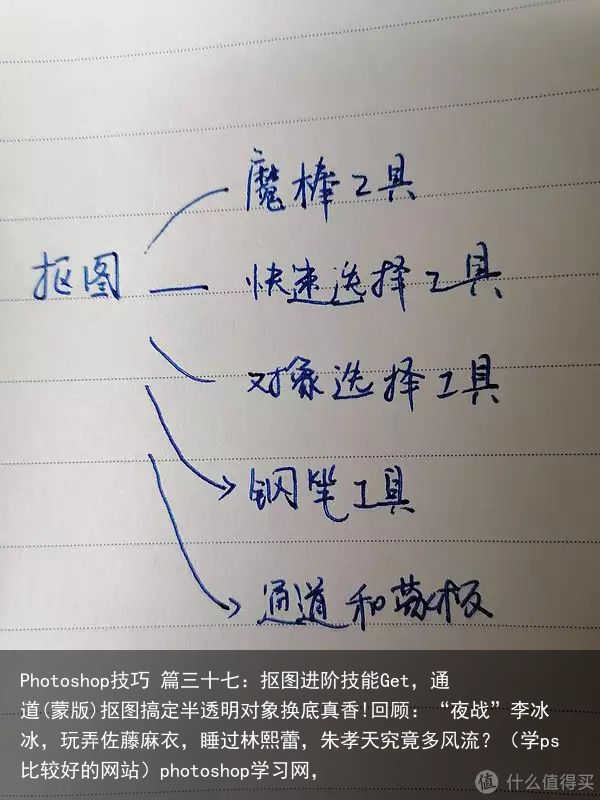 魔棒工具
抠图
快速选择工具
对象选择工具
钢笔工具
通道和蒙板
Photoshop技巧 篇三十七：抠图进阶技能Get，通
道(蒙版)抠图搞定半透明对象换底真香!回顾：“夜战”李冰
冰，玩弄佐藤麻衣，睡过林熙蕾，朱孝天究竟多风流？（学ps
比较好的网站）photoshop学习网，
值 什么值得买